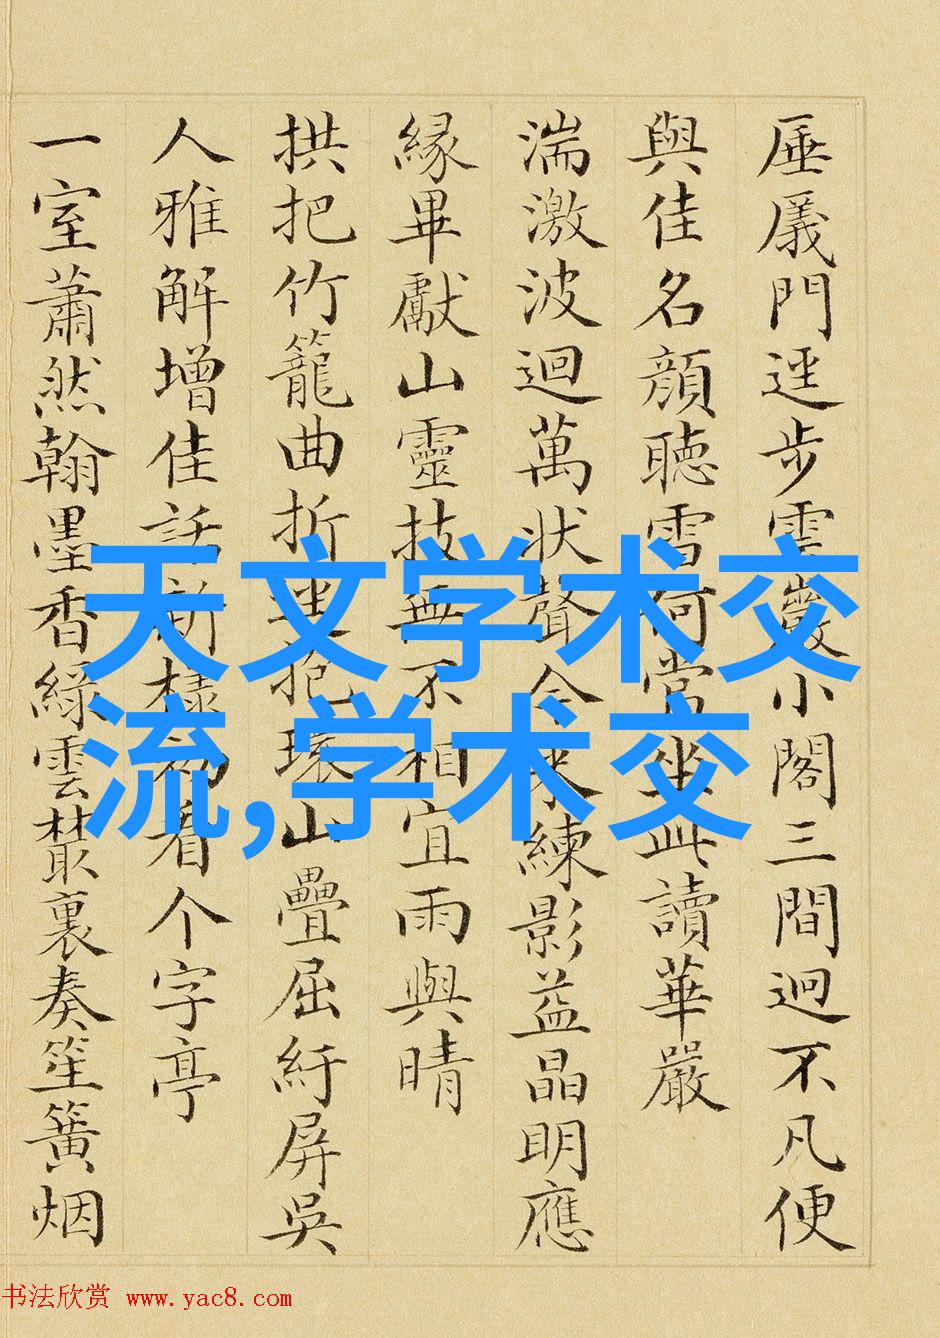 厜㕒門逕步雲巖小閣三間迥不凡便
與佳名顏聽雪何當坐此讀華嚴
湍激波迴萬狀聲練影益晶明應
緣畢獻山靈技無不相宜雨與晴
拱把竹籠曲折抱環山疊屈紆屏吳
人雅解增佳話新初看个字亭
一室蕭然翰墨香綠雲藂裏奏笙簧烟
天文学术交
流,学术交
书法欣赏 www.yac8.com